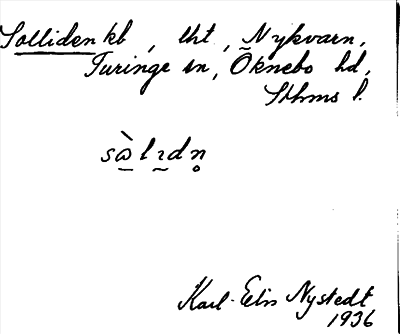 Solliden kb, lht, Nykvarn,
Turinge sn, Öknebo hd,
Sthms l.
sɷ̀lɪdn̥
Karl-Elis Nystedt
1936